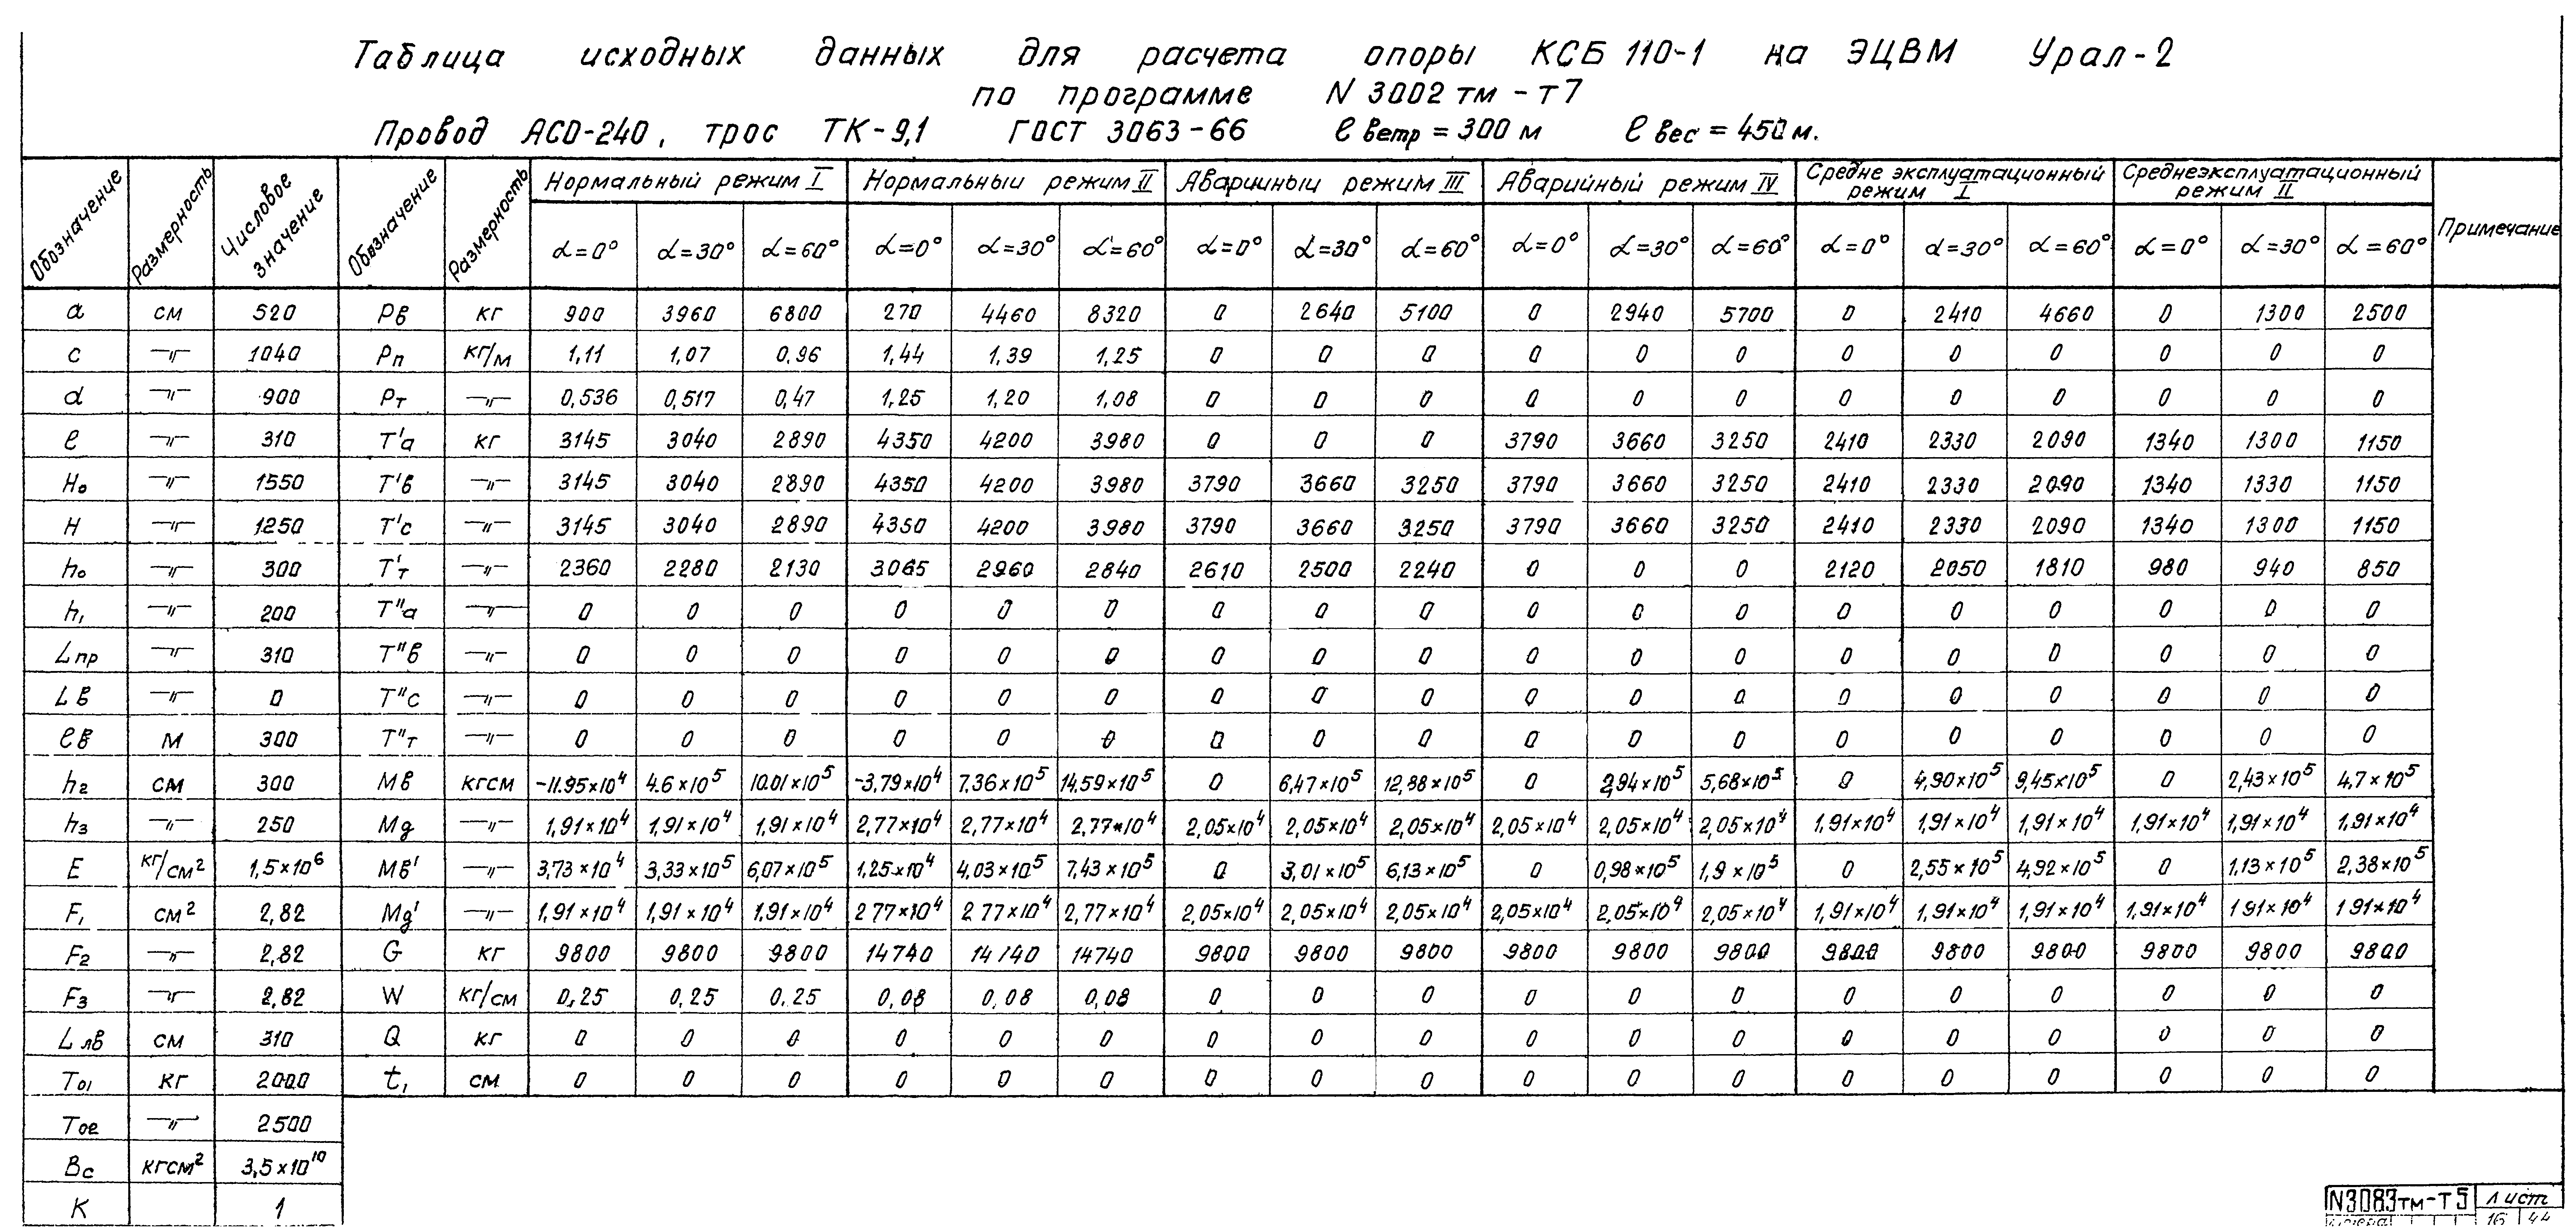 Таблица исходных данных для расчета опоры КСБ 110-1 на ЭЦВМ Урал-2
по программе N 3002 тм - т7
Провод АСО-240, трос ТК-9,1 ГОСТ 3063-66 ℓ ветр = 300 м ℓ вес = 450 м.
Обозначение Размерность Числовое значение Обозначение Размерность Нормальный режим I Нормальный режим II Аварийный режим III Аварийный режим IV Средне эксплуатационный режим I Среднеэксплуатационный режим II Примечание
α=0° α=30° α=60° α=0° α=30° α=60° α=0° α=30° α=60° α=0° α=30° α=60° α=0° α=30° α=60° α=0° α=30° α=60°
a см 520 Рв кг 900 3960 6800 270 4460 8320 0 2640 5100 0 2940 5700 0 2410 4660 0 1300 2500
c —"— 1040 Рп кг/м 1,11 1,07 0,96 1,44 1,39 1,25 0 0 0 0 0 0 0 0 0 0 0 0
d —"— 900 Рт —"— 0,536 0,517 0,47 1,25 1,20 1,08 0 0 0 0 0 0 0 0 0 0 0 0
ℓ —"— 310 Т'а кг 3145 3040 2890 4350 4200 3980 0 0 0 3790 3660 3250 2410 2330 2090 1340 1300 1150
Н₀ —"— 1550 Т'в —"— 3145 3040 2890 4350 4200 3980 3790 3660 3250 3790 3660 3250 2410 2330 2090 1340 1330 1150
Н —"— 1250 Т'с —"— 3145 3040 2890 4350 4200 3980 3790 3660 3250 3790 3660 3250 2410 2330 2090 1340 1300 1150
h₀ —"— 300 Т'т —"— 2360 2280 2130 3065 2960 2840 2610 2500 2240 0 0 0 2120 2050 1810 980 940 850
h₁ —"— 200 Т"а —"— 0 0 0 0 0 0 0 0 0 0 0 0 0 0 0 0 0 0
L пр —"— 310 Т"в —"— 0 0 0 0 0 0 0 0 0 0 0 0 0 0 0 0 0 0
L в —"— 0 Т"с —"— 0 0 0 0 0 0 0 0 0 0 0 0 0 0 0 0 0 0
ℓв м 300 Т"т —"— 0 0 0 0 0 0 0 0 0 0 0 0 0 0 0 0 0 0
h₂ см 300 Мв кгсм -11.95×10⁴ 4.6×10⁵ 10.01×10⁵ -3,79×10⁴ 7,36×10⁵ 14,59×10⁵ 0 6,47×10⁵ 12,88×10⁵ 0 2,94×10⁵ 5,68×10⁵ 0 4,90×10⁵ 9,45×10⁵ 0 2,43×10⁵ 4,7×10⁵
h₃ —"— 250 Мg —"— 1,91×10⁴ 1,91×10⁴ 1,91×10⁴ 2,77×10⁴ 2,77×10⁴ 2,77×10⁴ 2,05×10⁴ 2,05×10⁴ 2,05×10⁴ 2,05×10⁴ 2,05×10⁴ 2,05×10⁴ 1,91×10⁴ 1,91×10⁴ 1,91×10⁴ 1,91×10⁴ 1,91×10⁴ 1,91×10⁴
E кг/см² 1,5×10⁶ Мв' —"— 3,73×10⁴ 3,33×10⁵ 6,07×10⁵ 1,25×10⁴ 4,03×10⁵ 7,43×10⁵ 0 3,01×10⁵ 6,13×10⁵ 0 0,98×10⁵ 1,9×10⁵ 0 2,55×10⁵ 4,92×10⁵ 0 1,13×10⁵ 2,38×10⁵
F₁ см² 2,82 Мg' —"— 1,91×10⁴ 1,91×10⁴ 1,91×10⁴ 2 77×10⁴ 2 77×10⁴ 2,77×10⁴ 2,05×10⁴ 2,05×10⁴ 2,05×10⁴ 2,05×10⁴ 2,05×10⁴ 2,05×10⁴ 1,91×10⁴ 1,91×10⁴ 1,91×10⁴ 1,91×10⁴ 1 91×10⁴ 1 91×10⁴
F₂ —"— 2,82 G кг 9800 9800 9800 14740 14740 14740 9800 9800 9800 9800 9800 9800 9800 9800 9800 9800 9800 9800
F₃ —"— 2,82 W кг/см 0,25 0,25 0,25 0,08 0,08 0,08 0 0 0 0 0 0 0 0 0 0 0 0
L лв см 310 Q кг 0 0 0 0 0 0 0 0 0 0 0 0 0 0 0 0 0 0
Т₀₁ кг 2000 t₁ см 0 0 0 0 0 0 0 0 0 0 0 0 0 0 0 0 0 0
Т₀₂ —"— 2500
Вс кгсм² 3,5×10¹⁰
К 1
N3083тм-т5 Лист
16 44